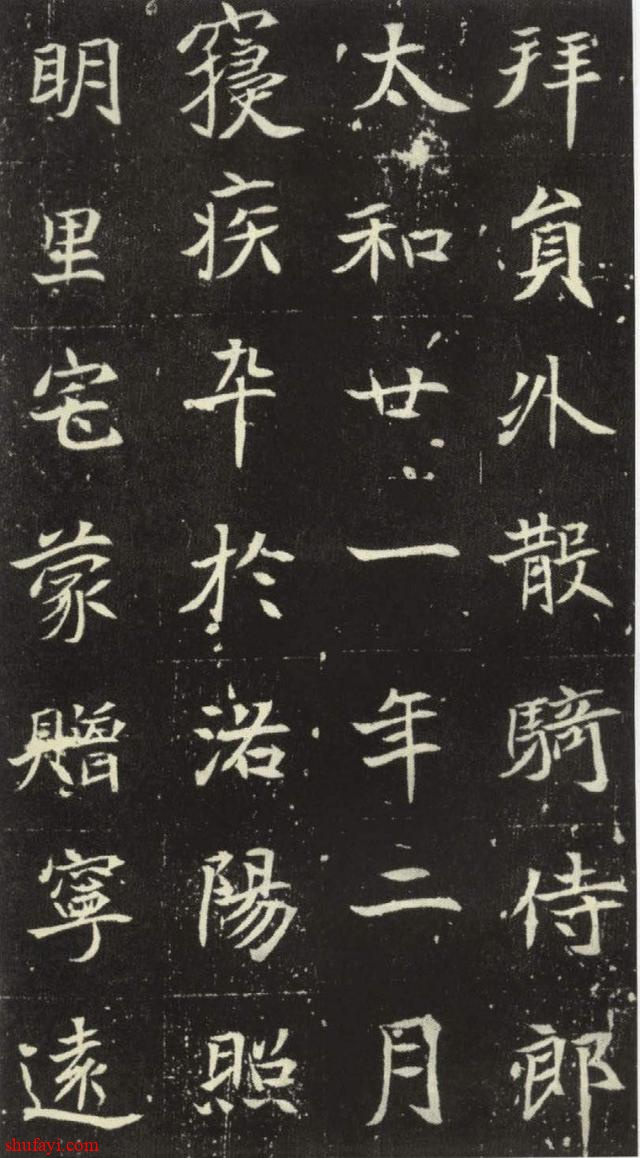 拜員外散騎侍郎
太和廿一年二月
寑疾卒於洛陽照
明里宅蒙贈寧遠
shufayi.com